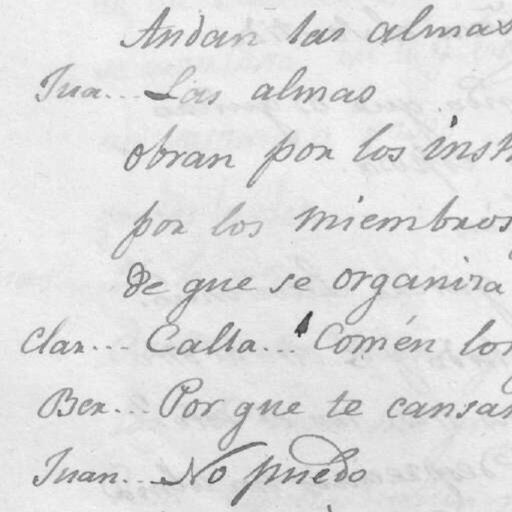 Andan las almas
Jua... Las almas
obran por los inst
por los miembros
de que se organiza
Clar... Calla... Comén los
Ber... Por que te cansas
Juan... No puedo